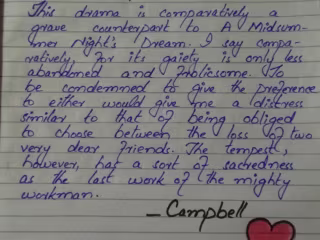 This drama is comparatively a
grave counterpart to A Midsum-
mer Night's Dream. I say compa-
ratively, for its gaiety is only less
abandoned and frolicsome. To
be condemned to give the preference
to either would give me a distress
similar to that of being obliged
to choose between the loss of two
very dear friends. The tempest,
however, has a sort of sacredness
as the last work of the mighty
workman.
– Campbell